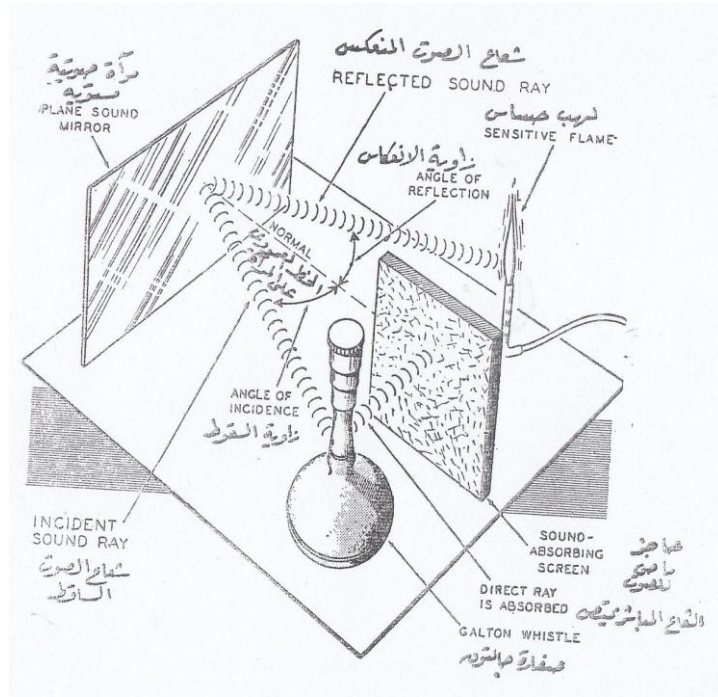 شعاع الصوت المنعكس
REFLECTED SOUND RAY
مرآة صوتية
مستوية
PLANE SOUND
MIRROR
لهب حساس
SENSITIVE FLAME
زاوية الانعكاس
ANGLE OF
REFLECTION
NORMAL
على المرآة
ANGLE OF
INCIDENCE
زاوية السقوط
INCIDENT
SOUND RAY
شعاع الصوت
الساقط
SOUND-
ABSORBING
SCREEN
حاجز
ماص
للصوت
DIRECT RAY
IS ABSORBED
الشعاع المباشر يمتص
GALTON WHISTLE
صفارة جالتون